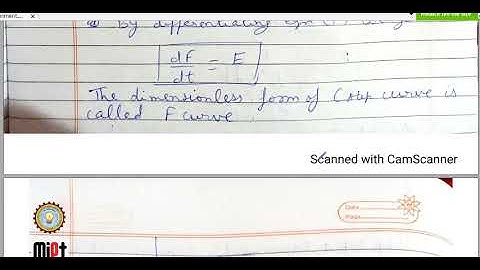 by differentiating eqn
dF
dt = E
The dimensionless form of C step curve is
called F curve
Scanned with CamScanner
Date
Page